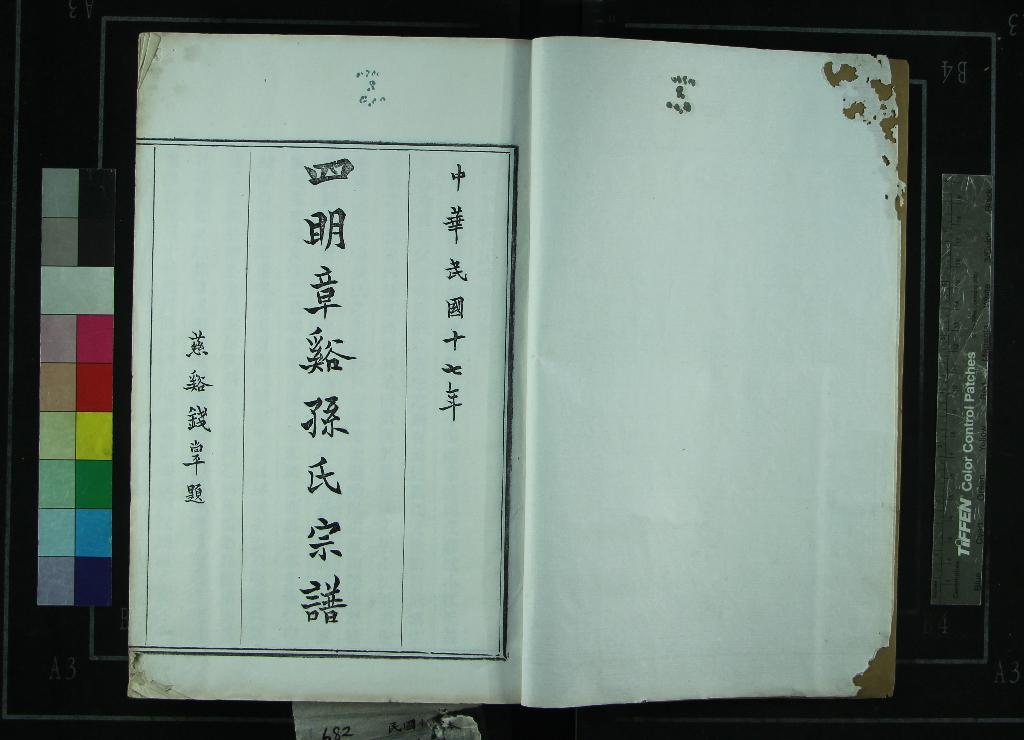 中華民國十七年
四明章谿孫氏宗譜
慈谿錢罕題
TIFFEN Color Control Patches
682
民國
A3
B4
A3
A3